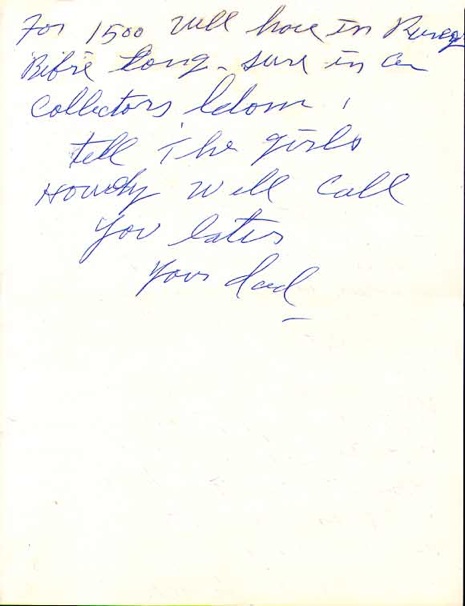 For 1500 will have in Runing
Bifre Long - sure is a
Collectors Idom,
tell The girls
Howdy will call
You later
Your dad